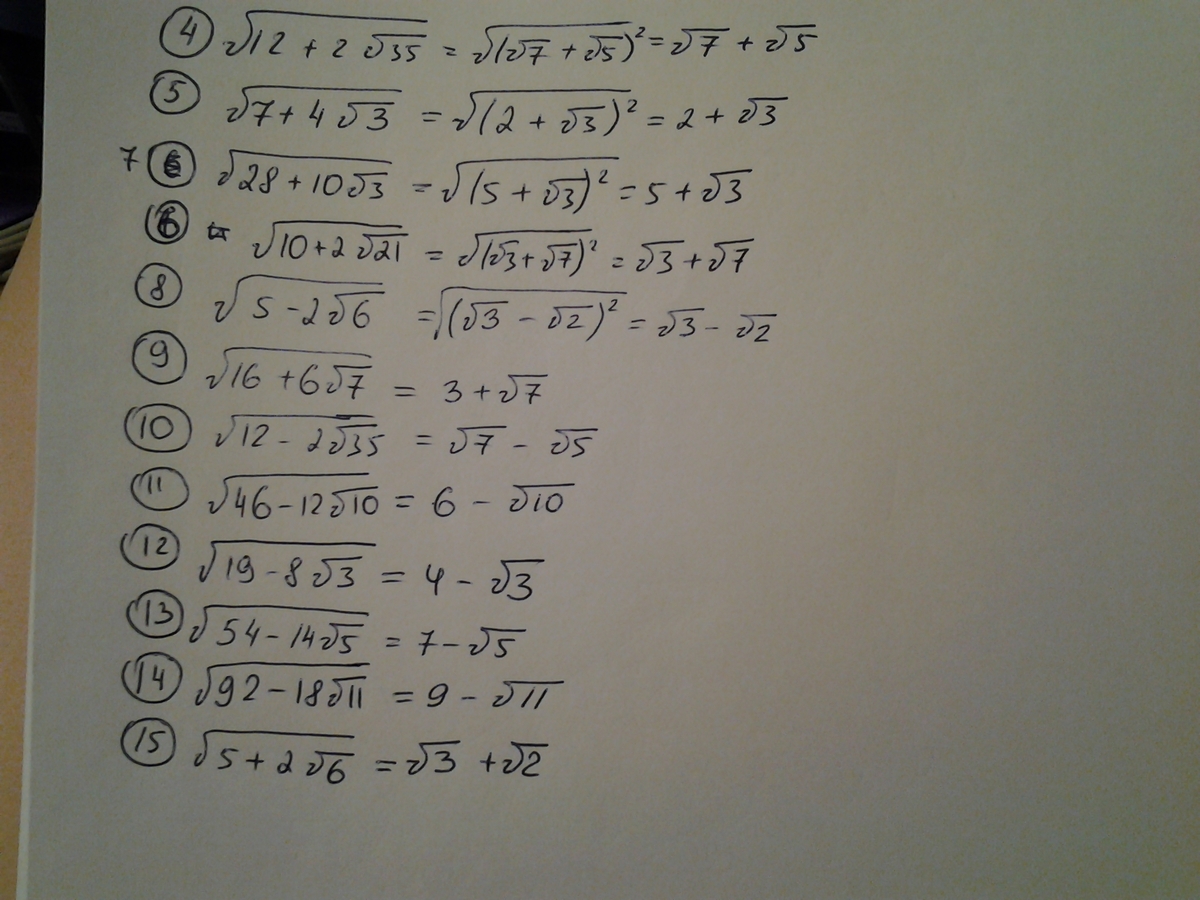 ④ √(12 + 2√35) = √((√7 + √5)²) = √7 + √5
⑤ √(7 + 4√3) = √((2 + √3)²) = 2 + √3
7 √(28 + 10√3) = √((5 + √3)²) = 5 + √3
⑥ √(10 + 2√21) = √((√3 + √7)²) = √3 + √7
⑧ √(5 - 2√6) = √((√3 - √2)²) = √3 - √2
⑨ √(16 + 6√7) = 3 + √7
⑩ √(12 - 2√35) = √7 - √5
⑪ √(46 - 12√10) = 6 - √10
⑫ √(19 - 8√3) = 4 - √3
⑬ √(54 - 14√5) = 7 - √5
⑭ √(92 - 18√11) = 9 - √11
⑮ √(5 + 2√6) = √3 + √2